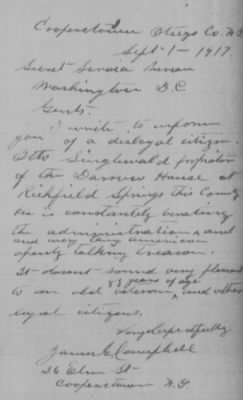 Cooperstown Otsego Co. N.Y.
Sept 1 - 1917.
Secret Service Bureau
Washington D.C
Gents.
I write to inform
you of a disloyal citizen.
Otto Singlewald proprietor
of the Darrow House at
Richfield Springs this County
he is constantly
the administration, and
and very
openly talking treason.
It dosent sound very pleasant
83 years of age
to an old veteran, and other
loyal citizens.
Very respectfully
James G. Campbell
26 Elm St
Cooperstown N.Y.